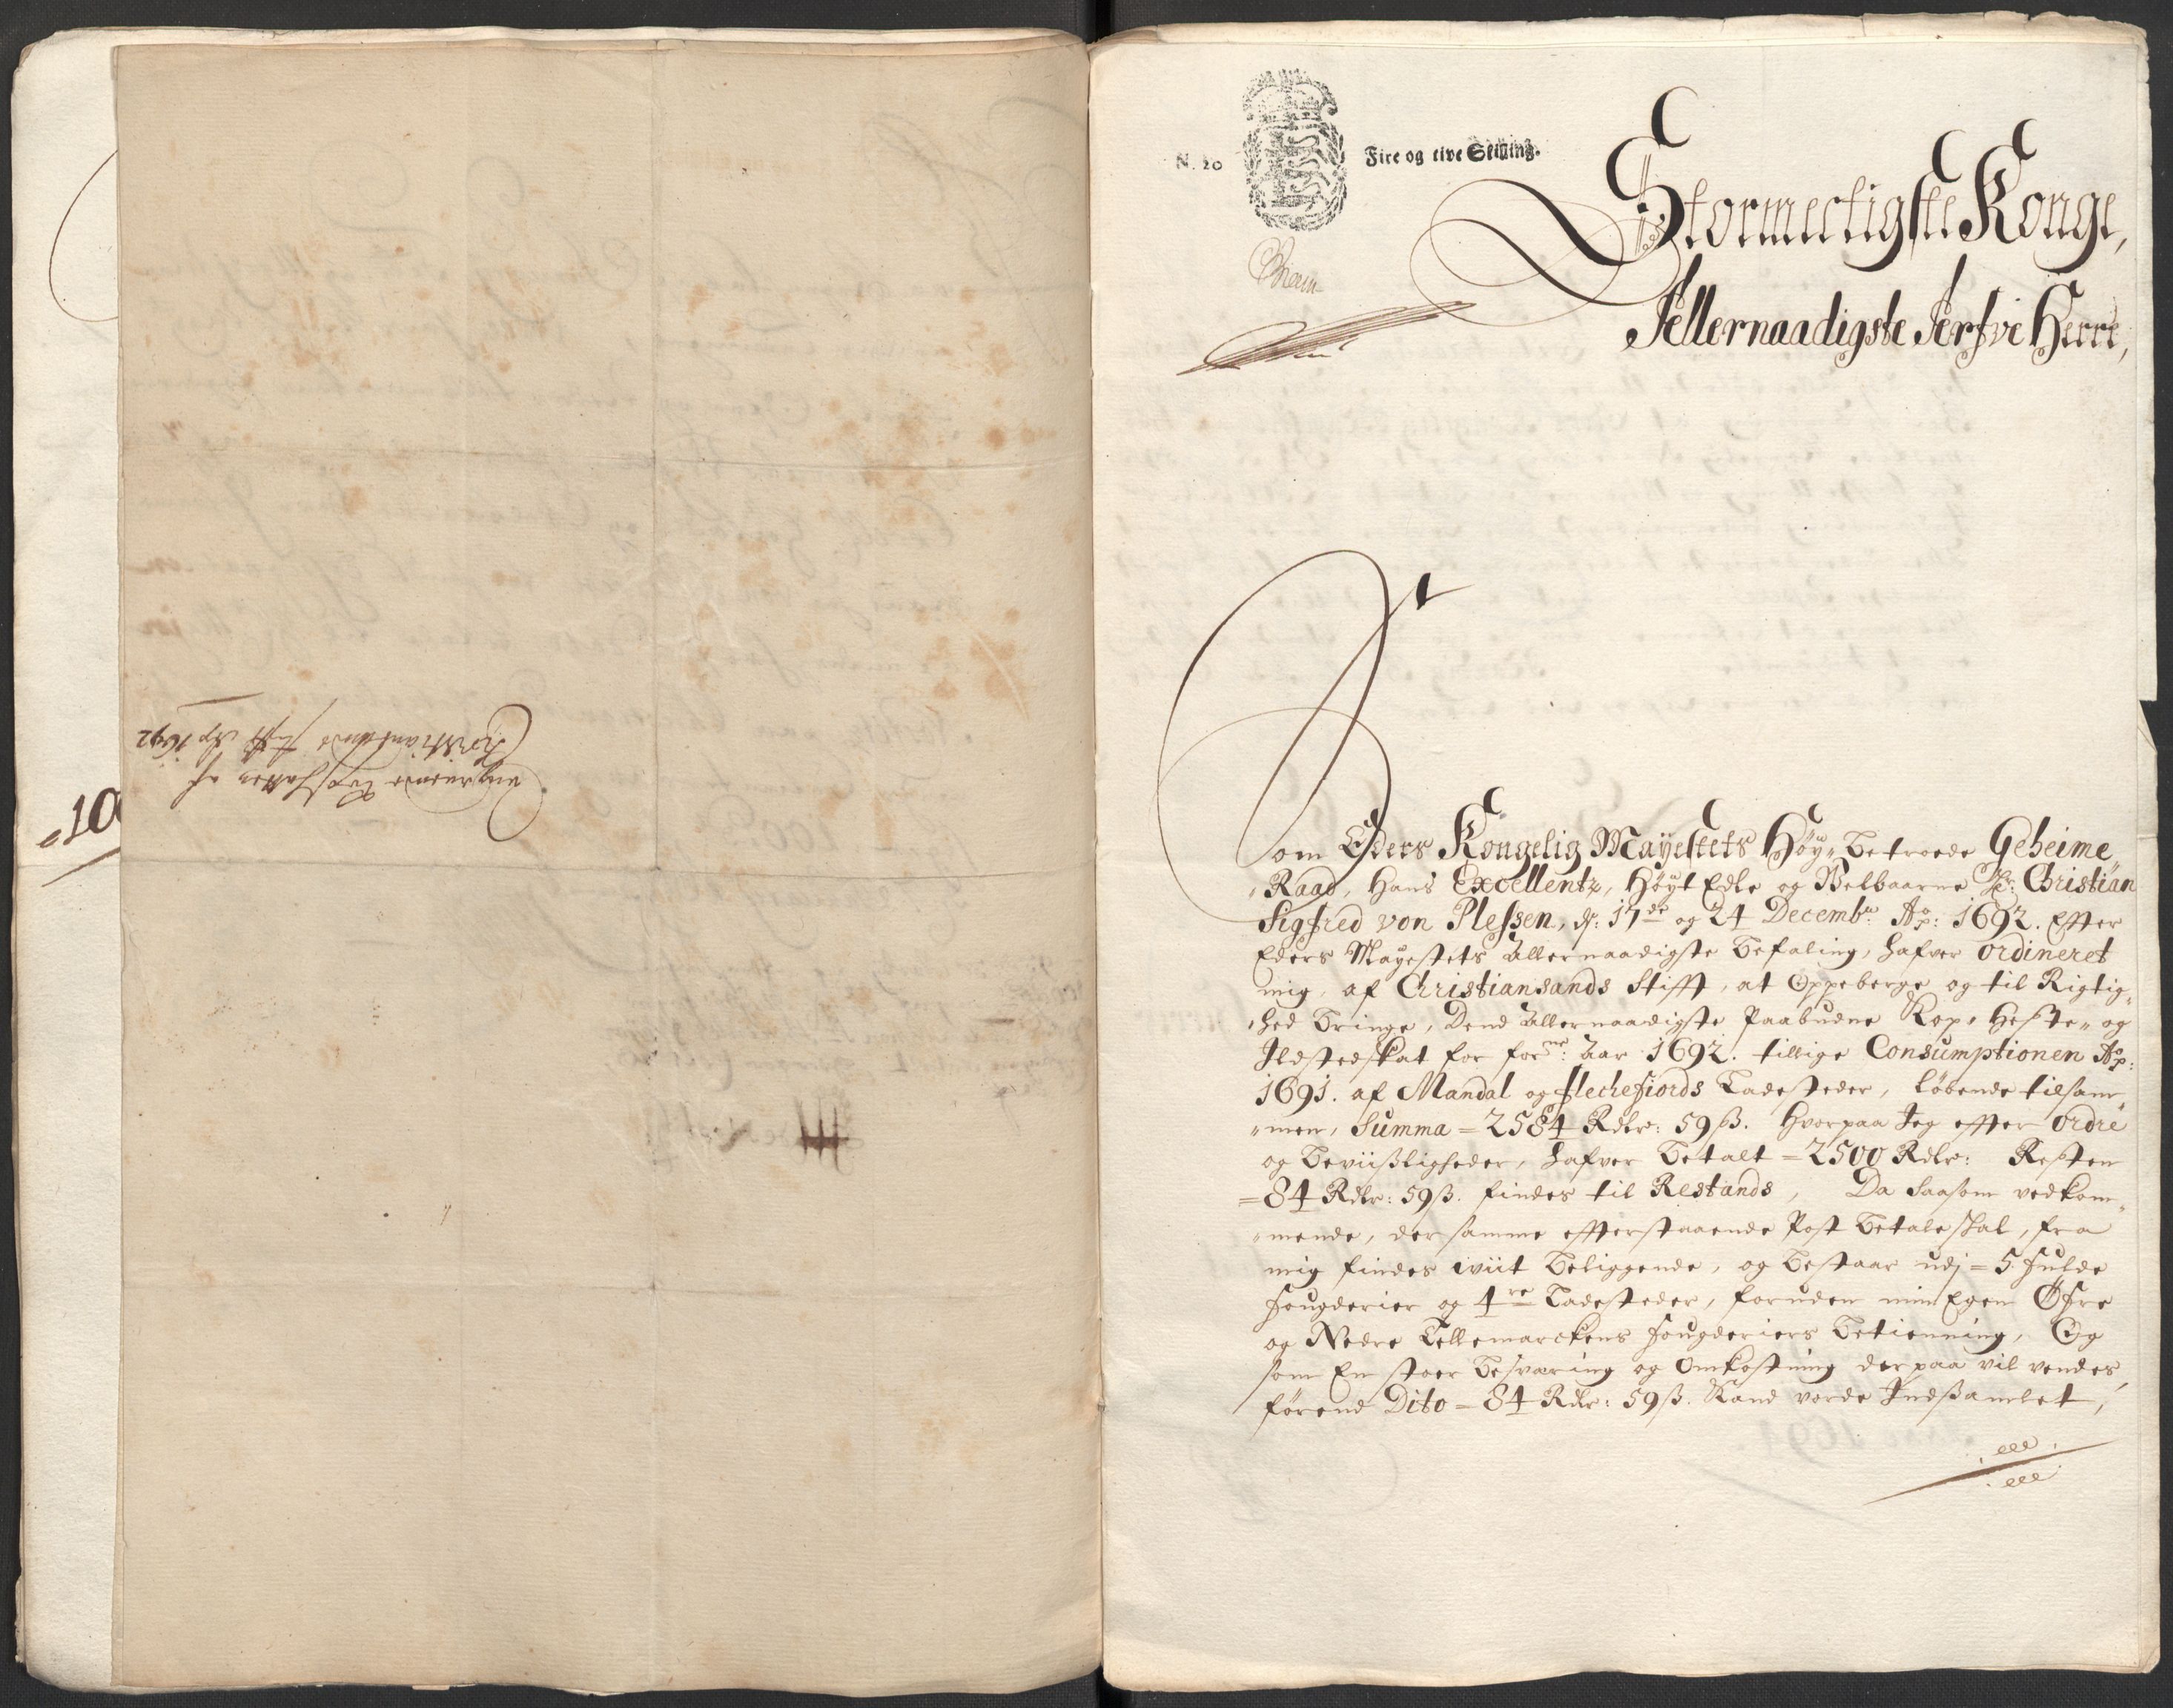 angaaende Kopskatten af
Christiansands stift Ao 1692
10
N. 20
Fire og tive Skilling.
Stormectigste Konge,
Allernaadigste Arfve Herre,
Som Eders Kongelig Mayestets Høy„ betroede Geheime„
„Raad, Hans Excellentz, Høyt Edle og Velbaarne Hr: Christian
Sigfred von Plessen, d: 17de og 24 Decembr: Ao: 1692. Effter
Eders Mayestets allernaadigste befaling, hafver ordineret
mig, af Christiansands Stifft, at Oppeberge og til Rigtig„
„hed bringe, Dend allernaadigste Paabudne Kop„ Heste„ og
Ildstedskat for forne: aar 1692. tillige Consumptionen Ao:
1691. af Mandal og Flechefiords Ladesteder, løbende tilsam„
„men, Summa = 2584 Rdlr: 59 ß. Hvorpaa Jeg effter ordre
og beviisligheder, hafver betalt = 2500 Rdlr: Resten
= 84 Rdlr: 59 ß. findes til Restands, Da saasom vedkom„
„mende, der samme effterstaaende Post betale skal, fra
mig findes wiit beliggende, og bestaar udj = 5 fulde
fougderier og 4re Ladesteder, foruden min Egen Øfre
og Nedre Tellemarckens fougderiers betienning, Og
som En stoer besværing og Omkostning derpaa vil vendes,
førend Dito = 84 Rdlr: 59 ß. Kand vorde Indsamlet,